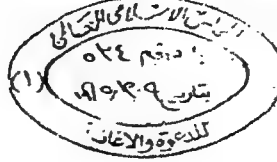 المجلس الاسلامى العالمى
رقم ٥٣٤
(١)
بتاريخ
للدعوة والاغاثة